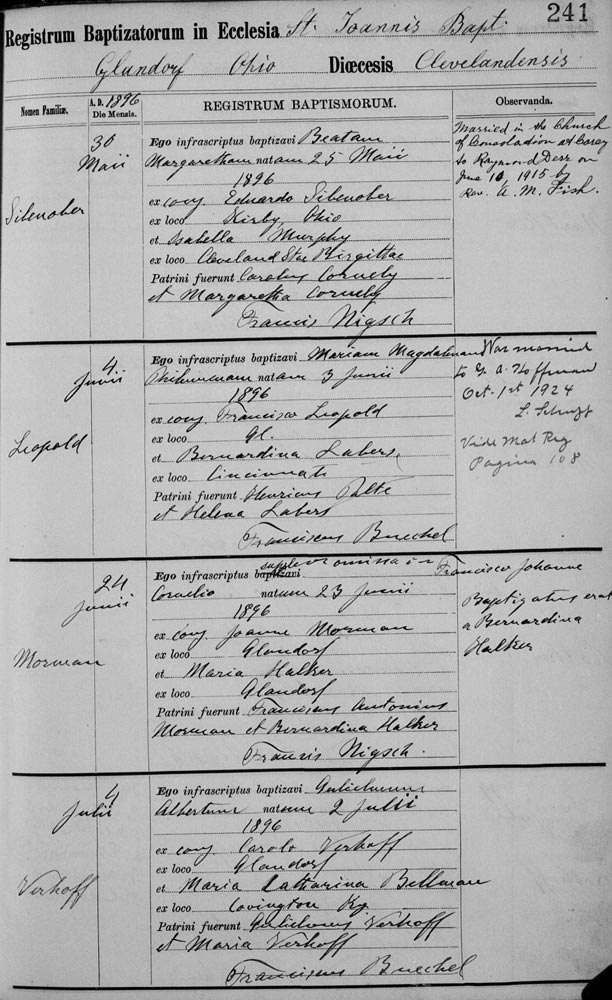 241
Registrum Baptizatorum in Ecclesia St. Joannis Bapt.
Glandorf Ohio Diœcesis Clevelandensis
Nomen Familiæ. A. D. 1896 Die Mensis. REGISTRUM BAPTISMORUM. Observanda.
30 Maii
Silenober
Ego infrascriptus baptizavi Beatam
Margaretham natam 25 Maii
1896
ex conj. Eduardo Silenober
ex loco Kirby, Ohio
et Isabella Murphy
ex loco Cleveland Stae Birgittae
Patrini fuerunt Carolus Cornely
et Margaretha Cornely
Francis Nigsch
Married in the Church
of Consolation at Carey
to Raymond Derr on
June 10, 1915 by
Rev. A. M. Fish.
4 Junii
Leopold
Ego infrascriptus baptizavi Mariam Magdalenam
Philomenam natam 3 Junii
1896
ex conj. Francisco Leopold
ex loco Gl.
et Bernardina Labers
ex loco Cincinnati
Patrini fuerunt Henricus
et Helena Labers
Franciscus Buechel
Was married
to Hoffman
Oct. 1st 1924
L.
Vide Mat Reg
Pagina 108
24 Junii
Morman
Ego infrascriptus baptizavi supplevi omissa in Francisco Johanne
Cornelio natum 23 Junii
1896
ex conj. Joanne Morman
ex loco Glandorf
et Maria Halker
ex loco Glandorf
Patrini fuerunt Franciscus Antonius
Morman et Bernardina Halker
Francis Nigsch.
Baptizatus erat
a Bernardina
Halker
4 Julii
Verhoff
Ego infrascriptus baptizavi Gulielmum
Albertum natum 2 Julii
1896
ex conj. Carolo Verhoff
ex loco Glandorf
et Maria Catharina Bellman
ex loco Covington Ky.
Patrini fuerunt Gulielmus Verhoff
et Maria Verhoff
Franciscus Buechel